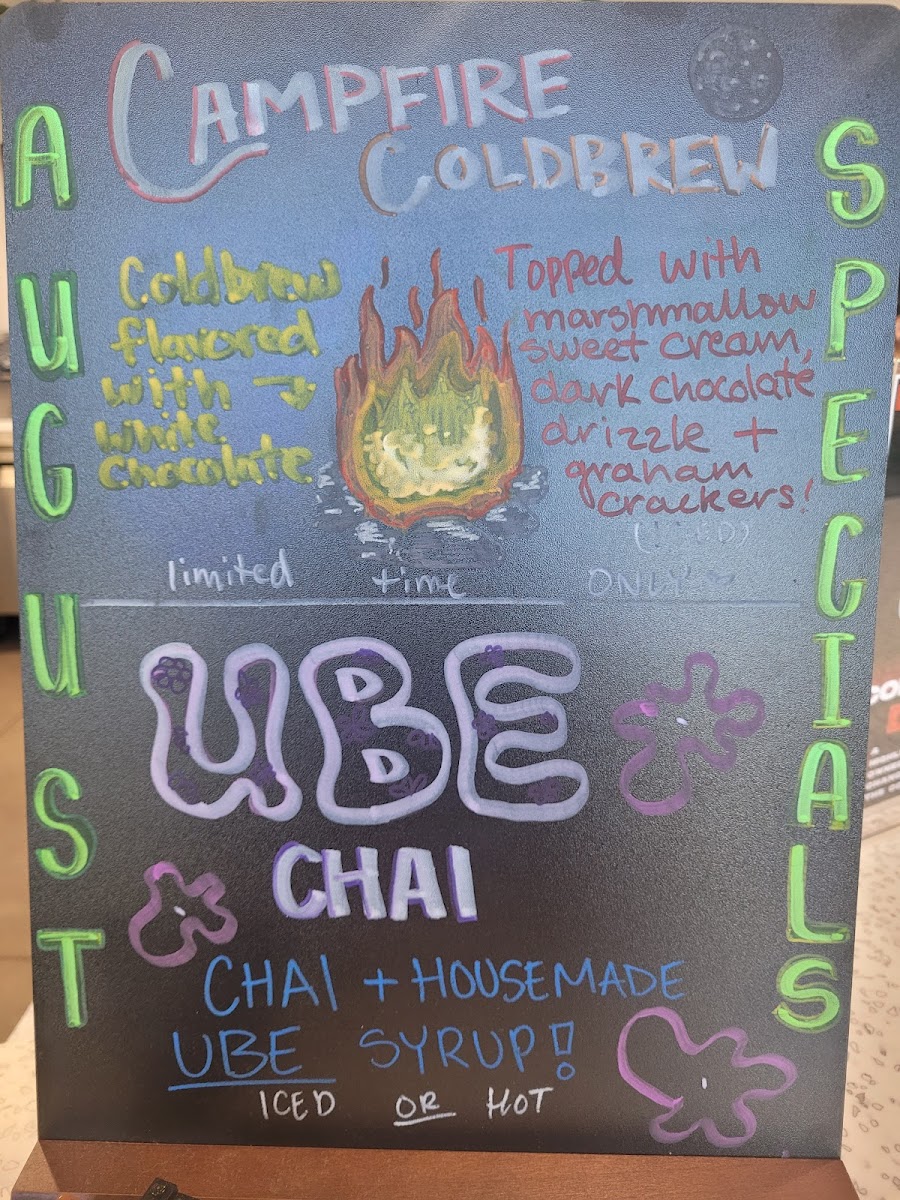 AUGUST
SPECIALS
CAMPFIRE
COLDBREW
Coldbrew
flavored
with →
white
chocolate
Topped with
marshmallow
sweet cream,
dark chocolate
drizzle +
graham
crackers!
limited time
UBE
CHAI
CHAI + HOUSEMADE
UBE SYRUP!
ICED OR HOT